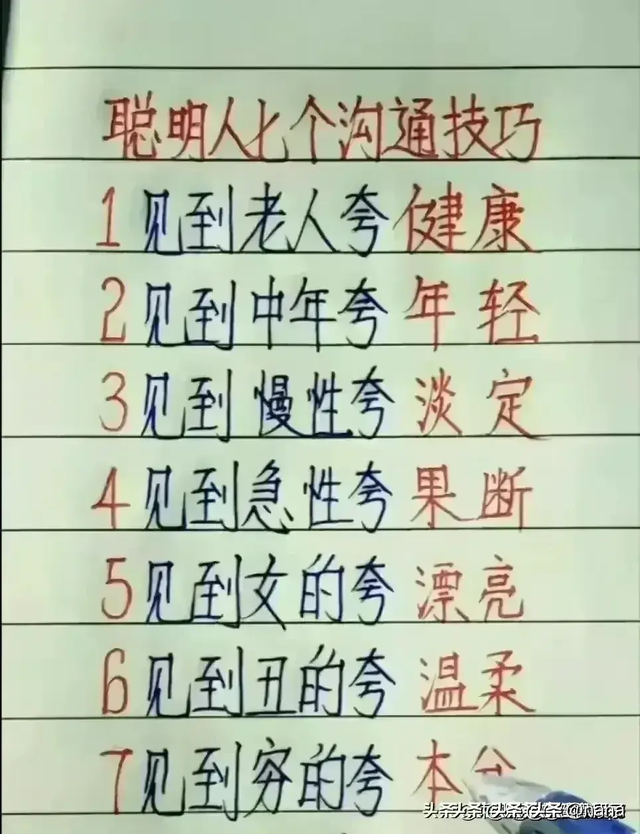 聪明人七个沟通技巧
1见到老人夸健康
2见到中年夸年轻
3见到慢性夸淡定
4见到急性夸果断
5见到女的夸漂亮
6见到丑的夸温柔
7见到穷的夸本分